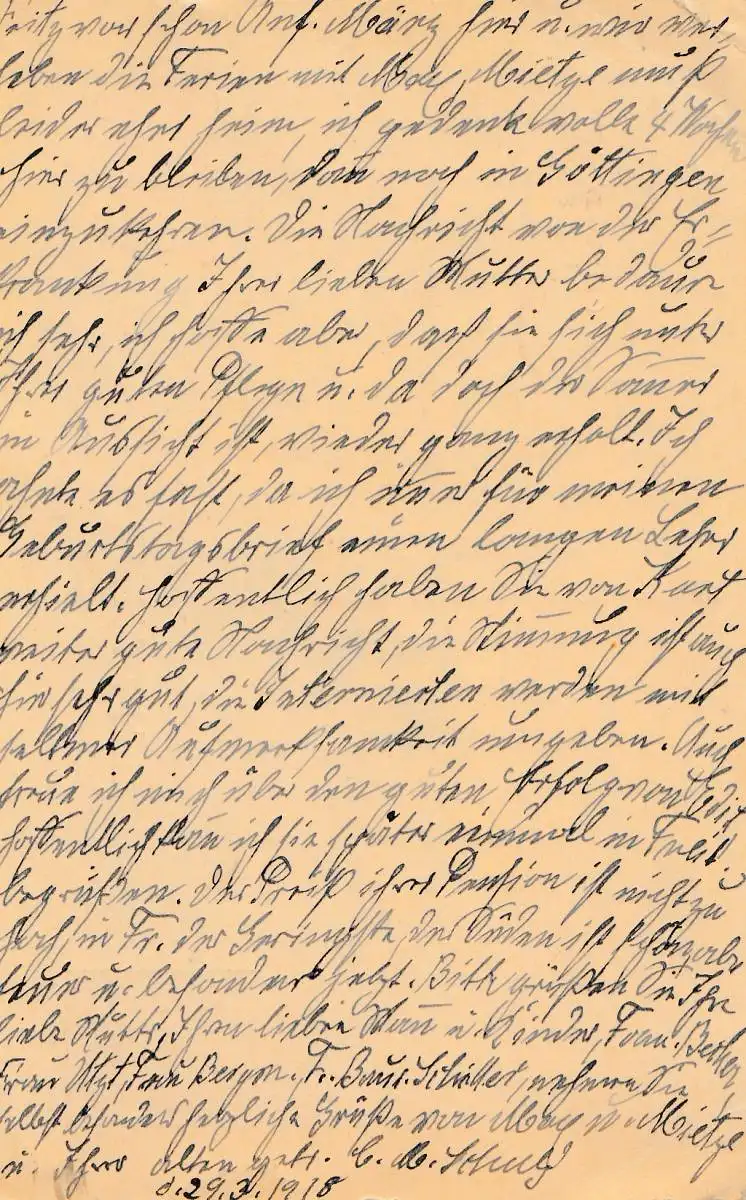 Fritz war schon Anf. März hier u. wir ver-
leben die Ferien mit Max, Mietze muß
leider eher heim, ich gedenke volle 4 Wochen
hier zu bleiben, dan̄ noch in Göttingen
einzukehren. Die Nachricht von der Er-
krankung Ihrer lieben Mutter bedaure
ich sehr, ich hoffe aber, daß sie sich unter
Ihrer guten Pflege u. da doch der Som̄er
in Aussicht ist, wieder ganz erholt. Ich
ahnte es fast, da ich für meinen
Geburtstagsbrief einen langen
erhielt. Hoffentlich haben Sie von Karl
weiter gute Nachricht, die Stim̄ung ist auch
hier sehr gut, die Internierten werden mit
seltener Aufmerksamkeit umgeben. Auch
freue ich mich über den guten Erfolg von
hoffentlich kan̄ ich sie später einmal in
begrüßen. Der Preiß ihrer Pension ist nicht zu
hoch, in Fr. der Geringste, der Süden ist schön aber
teuer u. besonders jetzt. Bitte grüßen Sie Ihre
liebe Mutter, Ihren lieben Man̄ u. Kinder, Frau
Frau Frau Bergon. Fr. nehmen Sie
selbst besonders herzliche Grüße von Max u. Mietze
u. Ihrer alten getr. C. M.
d. 29.3.1918